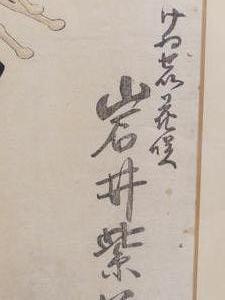 けいせい花咲
岩井紫